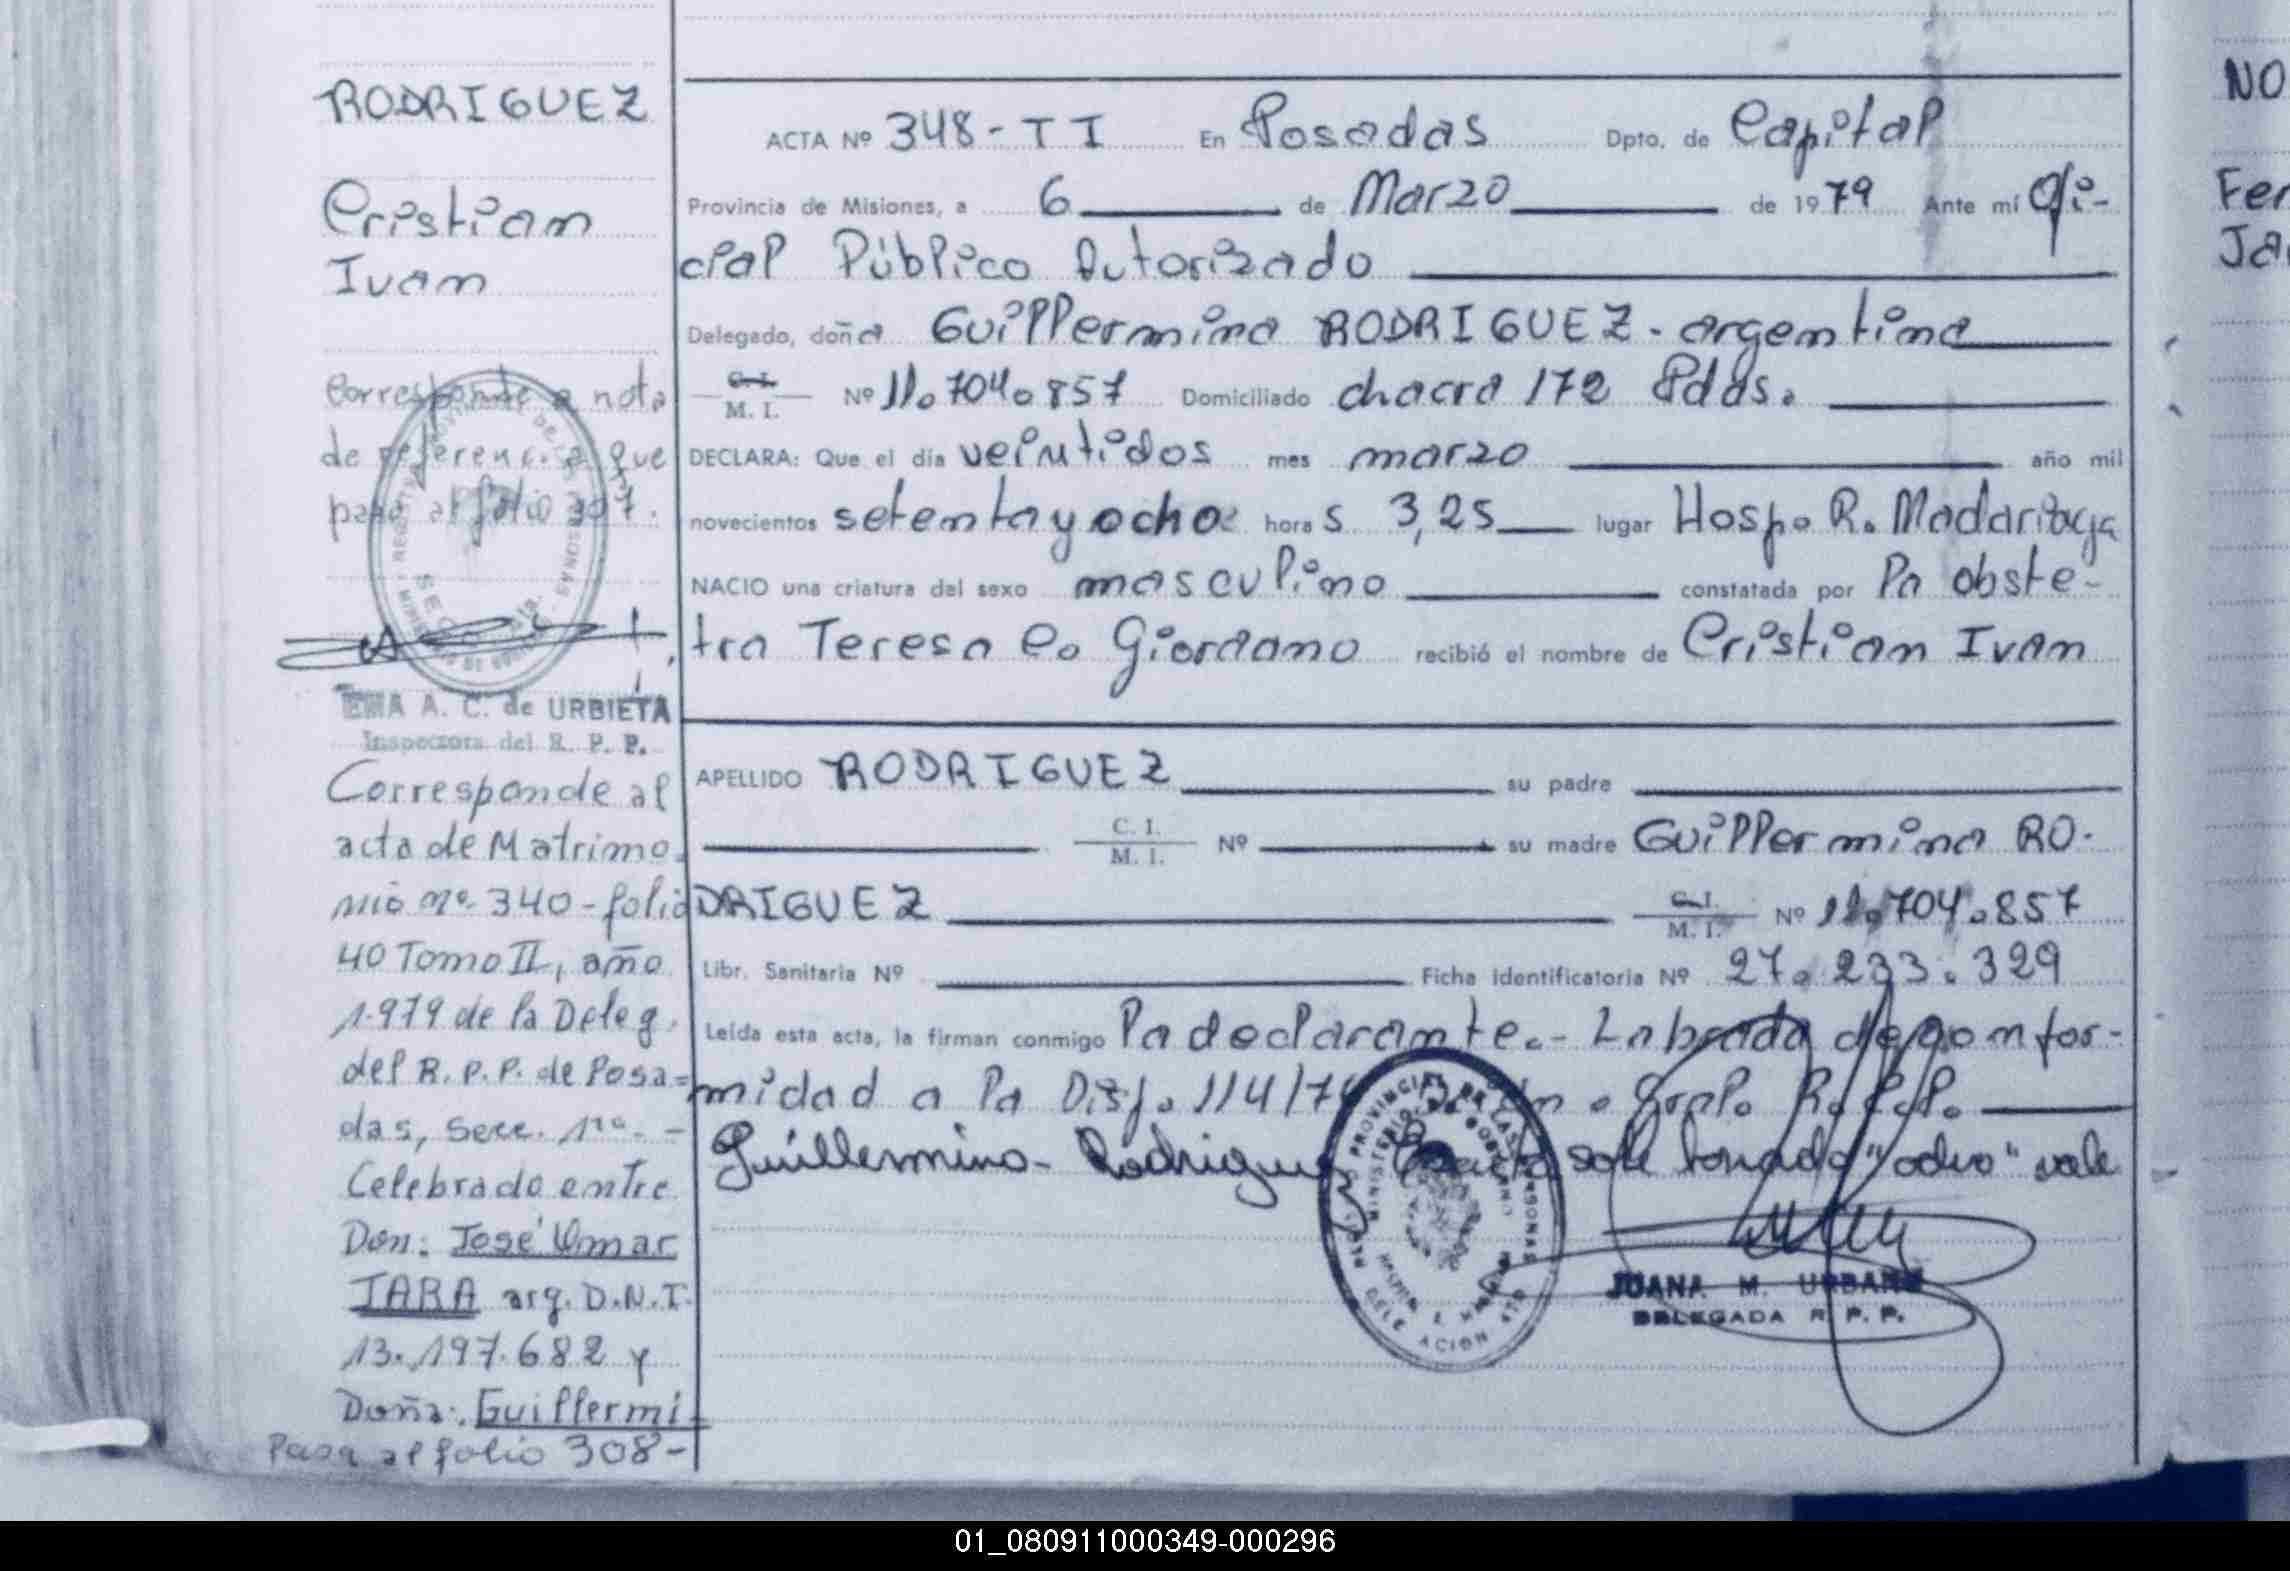 RODRIGUEZ
Cristian
Ivan
Corresponde a nota
de referencia que
pasa al folio 307.
SECC
EMA A. C. de URBIETA
Inspectora del R. P. P.
Corresponde al
acta de Matrimo-
nio nº 340 - folio
40 Tomo II, año
1.979 de la Deleg.
del R. P. P. de Posa=
das, Secc. 1ra. -
Celebrado entre
Don: José Omar
JARA arg. D.N.I.
13.197.682 y
Doña: Guillermi-
Pasa al folio 308-
ACTA Nº 348-TI En Posadas Dpto. de Capital
Provincia de Misiones, a 6 de Marzo de 1979 Ante mí Ofi-
cial Público Autorizado
Delegado, doña Guillermina RODRIGUEZ - argentina
C. I. M. I. Nº 11.704.857 Domiciliado chacra 172 Pdas.
DECLARA: Que el día veintidos mes marzo año mil
novecientos setenta y ocho horas 3,25 lugar Hosp. R. Madariaga
NACIO una criatura del sexo masculino constatada por la obste-
tra Teresa C. Giordano recibió el nombre de Cristian Ivan
APELLIDO RODRIGUEZ su padre
C. I. M. I. Nº su madre Guillermina RO-
DRIGUEZ C. I. M. I. Nº 11.704.857
Libr. Sanitaria Nº Ficha identificatoria Nº 27.233.329
Leída esta acta, la firman conmigo la declarante.- Labrada de confor-
midad a la Disp. 114/74 Gral. R.P.P.
Guillermina Rodriguez "ocho" vale
REGISTRO PROVINCIAL DE LAS PERSONAS
MINISTERIO DE GOBIERNO
DELEGACION
JUANA M. URBANO
DELEGADA R. P. P.
NO
Fer
Ja
01_080911000349-000296